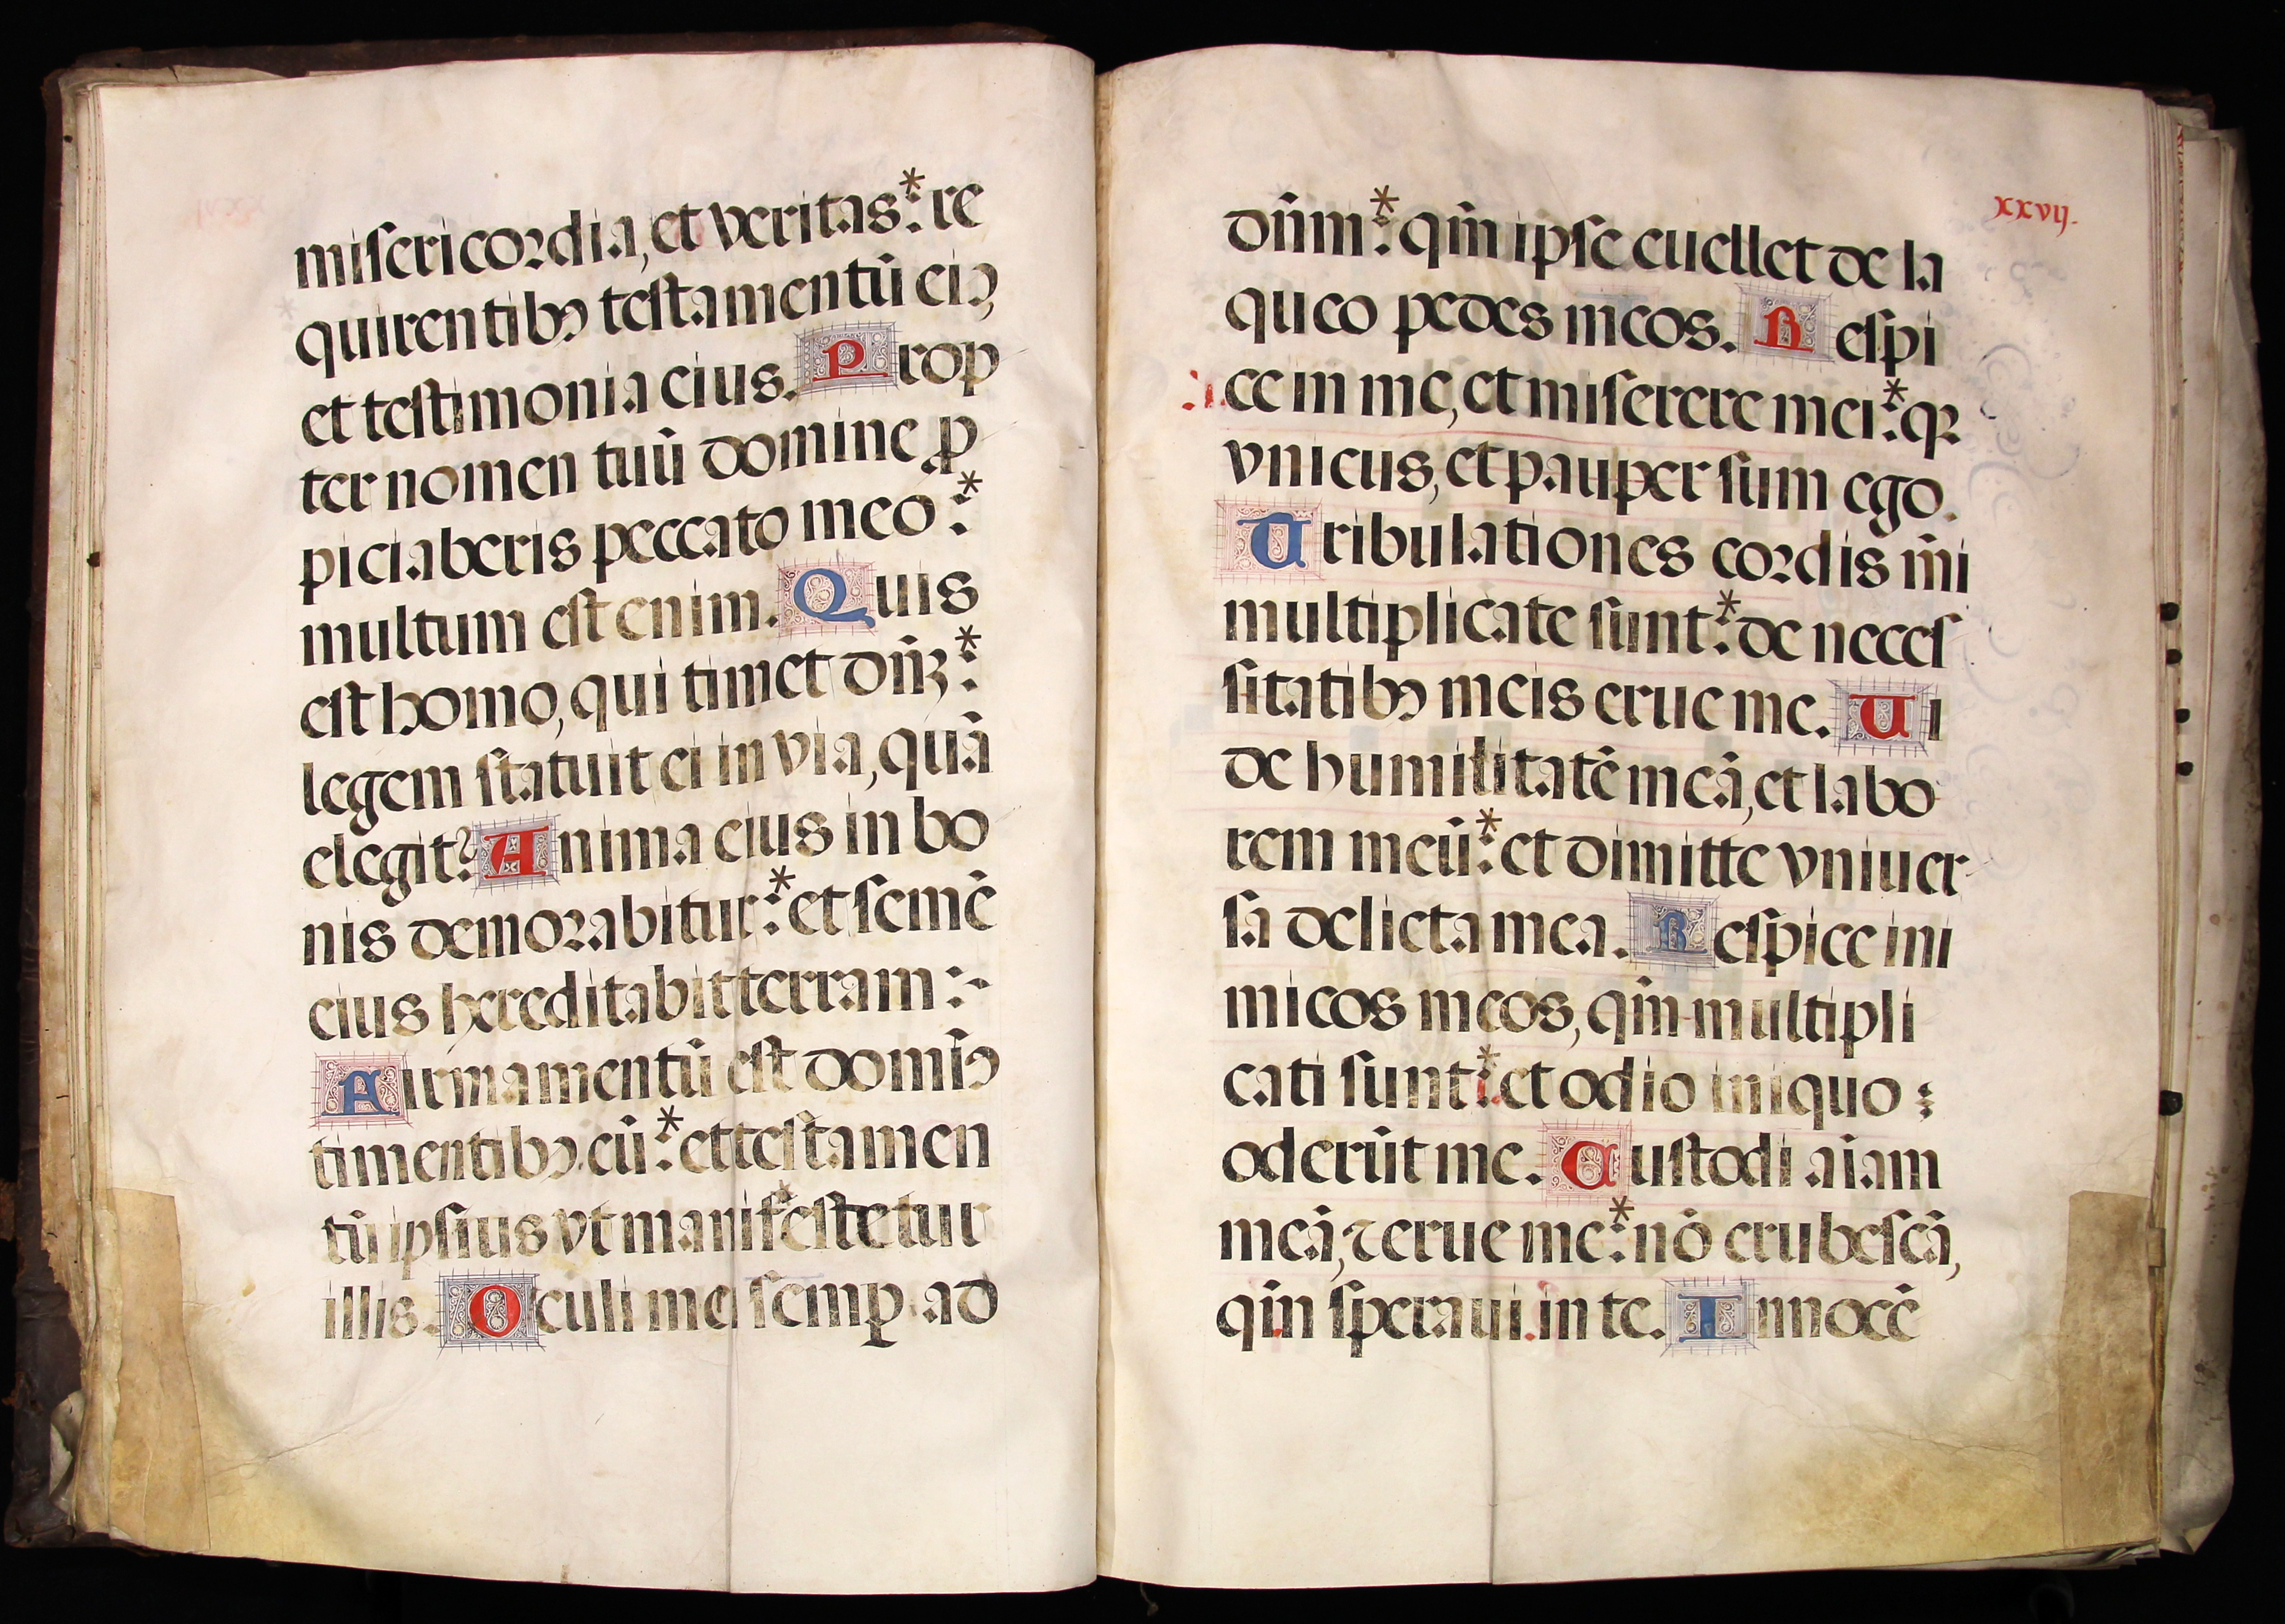 misericordia, et veritas: * re
quirentibꝰ testamentū eiꝰ
et testimonia eius. Prop
ter nomen tuū domine ꝓ
piciaberis peccato meo: *
multum est enim. Quis
est homo, qui timet dñꝫ: *
legem statuit ei in via, quā
elegit? Anima eius in bo
nis demorabitur: * et semē
eius hereditabit terram:-
Firmamentū est domīꝰ
timentibꝰ eū: * et testamen
tū ipsius vt manifestetur
illis. Oculi mei semꝑ ad
xxvij.
dñm: * qm̄ ipse euellet de la
queo pedes meos. Respi
ce in me, et miserere mei: * qꝛ
vnicus, et pauper sum ego.
Tribulationes cordis m̄i
multiplicate sunt: * de neces
sitatibꝰ meis erue me. Vi
de humilitatē meā, et labo
rem meū: * et dimitte vniuer
sa delicta mea. Respice ini
micos meos, qm̄ multipli
cati sunt: * et odio iniquo:
oderūt me. Custodi aiam
meā, ⁊ erue me: * nō erubescā,
qm̄ speraui in te. Innocē